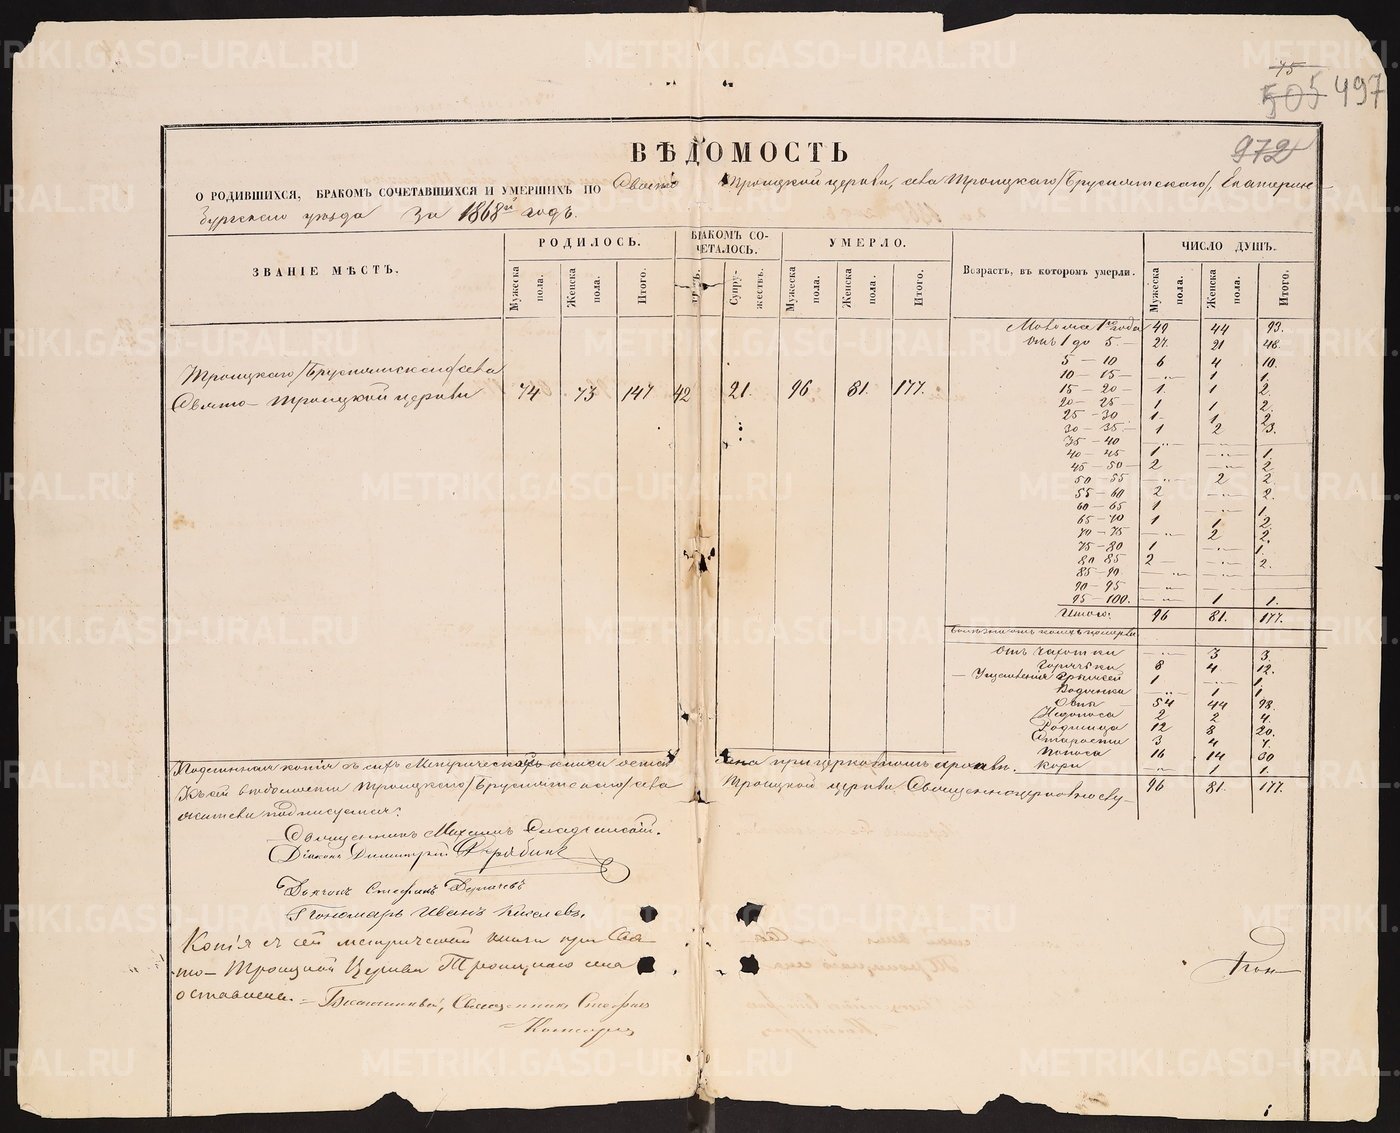 75
505 497
972
ВѢДОМОСТЬ
О РОДИВШИХСЯ, БРАКОМЪ СОЧЕТАВШИХСЯ И УМЕРШИХЪ ПО Свято Троицкой церкви, села Троицкаго /Бруснятскаго/, Екатерин-
бургскаго уѣзда За 1868й годъ.
ЗВАНІЕ МѢСТЪ. РОДИЛОСЬ. БРАКОМЪ СОЧЕТАЛОСЬ. УМЕРЛО. Возрастъ, въ которомъ умерли. ЧИСЛО ДУШЪ.
Мужеска пола. Женска пола. Итого. Супружествъ. Мужеска пола. Женска пола. Итого. Мужеска пола. Женска пола. Итого.
Троицкаго /Бруснятскаго/ села
Свято-Троицкой церкви 74 73 147 42 21. 96 81. 177.
1го года 49 44 93.
отъ 1 до 5. 27. 21 48.
5 — 10 6 4 10.
10 — 15 — „ — 1 1.
15 — 20 — 1 1 2.
20 — 25 — 1 1 2.
25 — 30 1 1 2.
30 — 35. — 1 2 3.
35 — 40 — „ — — „ —
40 — 45 1 — „ — 1.
45 — 50 — 2 — „ — 2
50 — 55 — „ — 2 2.
55 — 60 2 — „ — 2.
60 — 65 1 — „ — 1.
65 — 70 1 1 2.
70 — 75 — „ — 2 2.
75 — 80 1 — „ — 1.
80 85 2 — — „ — 2.
85 — 90 — „ — — „ —
90 — 95 — „ — — „ —
95 — 100. — „ — 1 1.
Итого: 96 81. 177.
Отъ чахотки — „ — 3 3.
Горячки 8 4. 12.
грыжей 1 — „ — 1
Водянки — „ — 1 1
Оспы 54 44 98.
2 2 4.
Родимца 12 8 20.
Старости 3 4 7.
Поноса 16 14 30
Кори — „ — 1 1.
96 81. 177.
Подлинная копія съ сихъ Метрическихъ книгъ оставлена при церковномъ архивѣ.
Къ сей вѣдомости Троицкаго /Бруснятскаго/ села Троицкой церкви Священноцерковнослу-
жители подписуемся:
Священникъ Михаилъ
Діаконъ Димитрій
Дьячокъ Стефанъ
Пономарь Иванъ Киселевъ.
Копія съ сей метрической книги при Свя-
то-Троицкой Церкви Троицкаго села
оставлена. = Священникъ Стефанъ